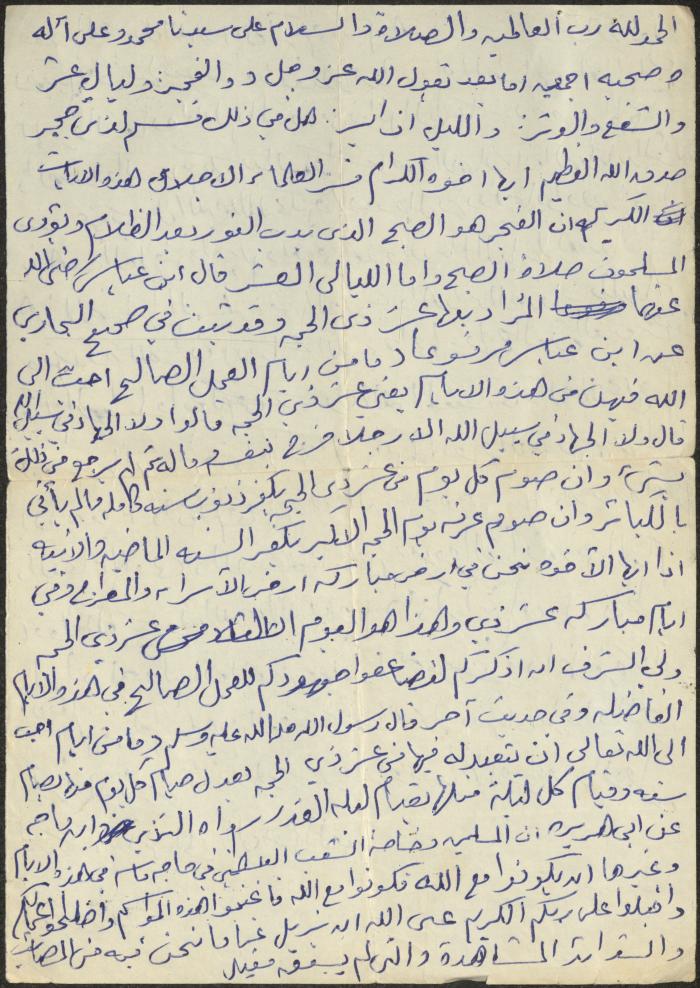 الحمد لله رب العالمين والصلاة والسلام على سيدنا محمد وعلى آله
وصحبه اجمعين اما بعد يقول الله عز وجل والفجر وليال عشر
والشفع والوتر والليل اذا يسر هل في ذلك قسم لذي حجر
صدق الله العظيم ايها الاخوه الكرام فسر العلماء الاجلاء هذه الايات
الكريمه ان الفجر هو الصبح الذي يدب النور بعد الظلام ويؤدي
المسلمون صلاة الصبح واما الليالي العشر قال ابن عباس رضي الله
عنهما المراد بها عشر ذي الحجه وقد ثبت في صحيح البخاري
عن ابن عباس مرفوعا ما من ايام العمل الصالح احب الى
الله فيهن من هذه الايام يعني عشر ذي الحجه قالوا ولا الجهاد في سبيل الله
قال ولا الجهاد في سبيل الله الا رجلا خرج بنفسه وماله ثم لم يرجع من ذلك
بشيء وان صوم كل يوم من عشر ذي الحجه يكفر ذنوب سنه كامله ما لم يأتي
بالكبائر وان صوم عرفه يوم الحج الاكبر يكفر السنه الماضيه والاتيه
اذا ايها الأخوه نحن في ارض مباركه ارض الآسراء والمعراج وفي
ايام مباركه عشر ذي وهذا هو اليوم الثالث من عشر ذي الحجه
ولي الشرف ان اذكركم لتضاعفوا جهودكم للعمل الصالح في هذه الأيام
الفاضله وفي حديث آخر قال رسول الله صلى الله عليه وسلم ما من ايام احب
الى الله تعالى ان يتعبد له فيها من عشر ذي الحجه يعدل صيام كل يوم منها بصيام
سنه وقيام كل ليلة منها بقيام ليله القدر رواه الترمذي وابن ماجه
عن ابي هريره ان المسلمين وخاصة الشعب الفلسطيني في حاجه ماسه في هذه الايام
وغيرها ان يكونوا مع الله فكونوا مع الله فاغتنموا هذه المواسم واصلحوا اعمالكم
واقبلوا على ربكم الكريم عسى الله ان يزيل عنا ما نحن فيه من المصائب
والشدائد المشاهدة والتي لم يسبق